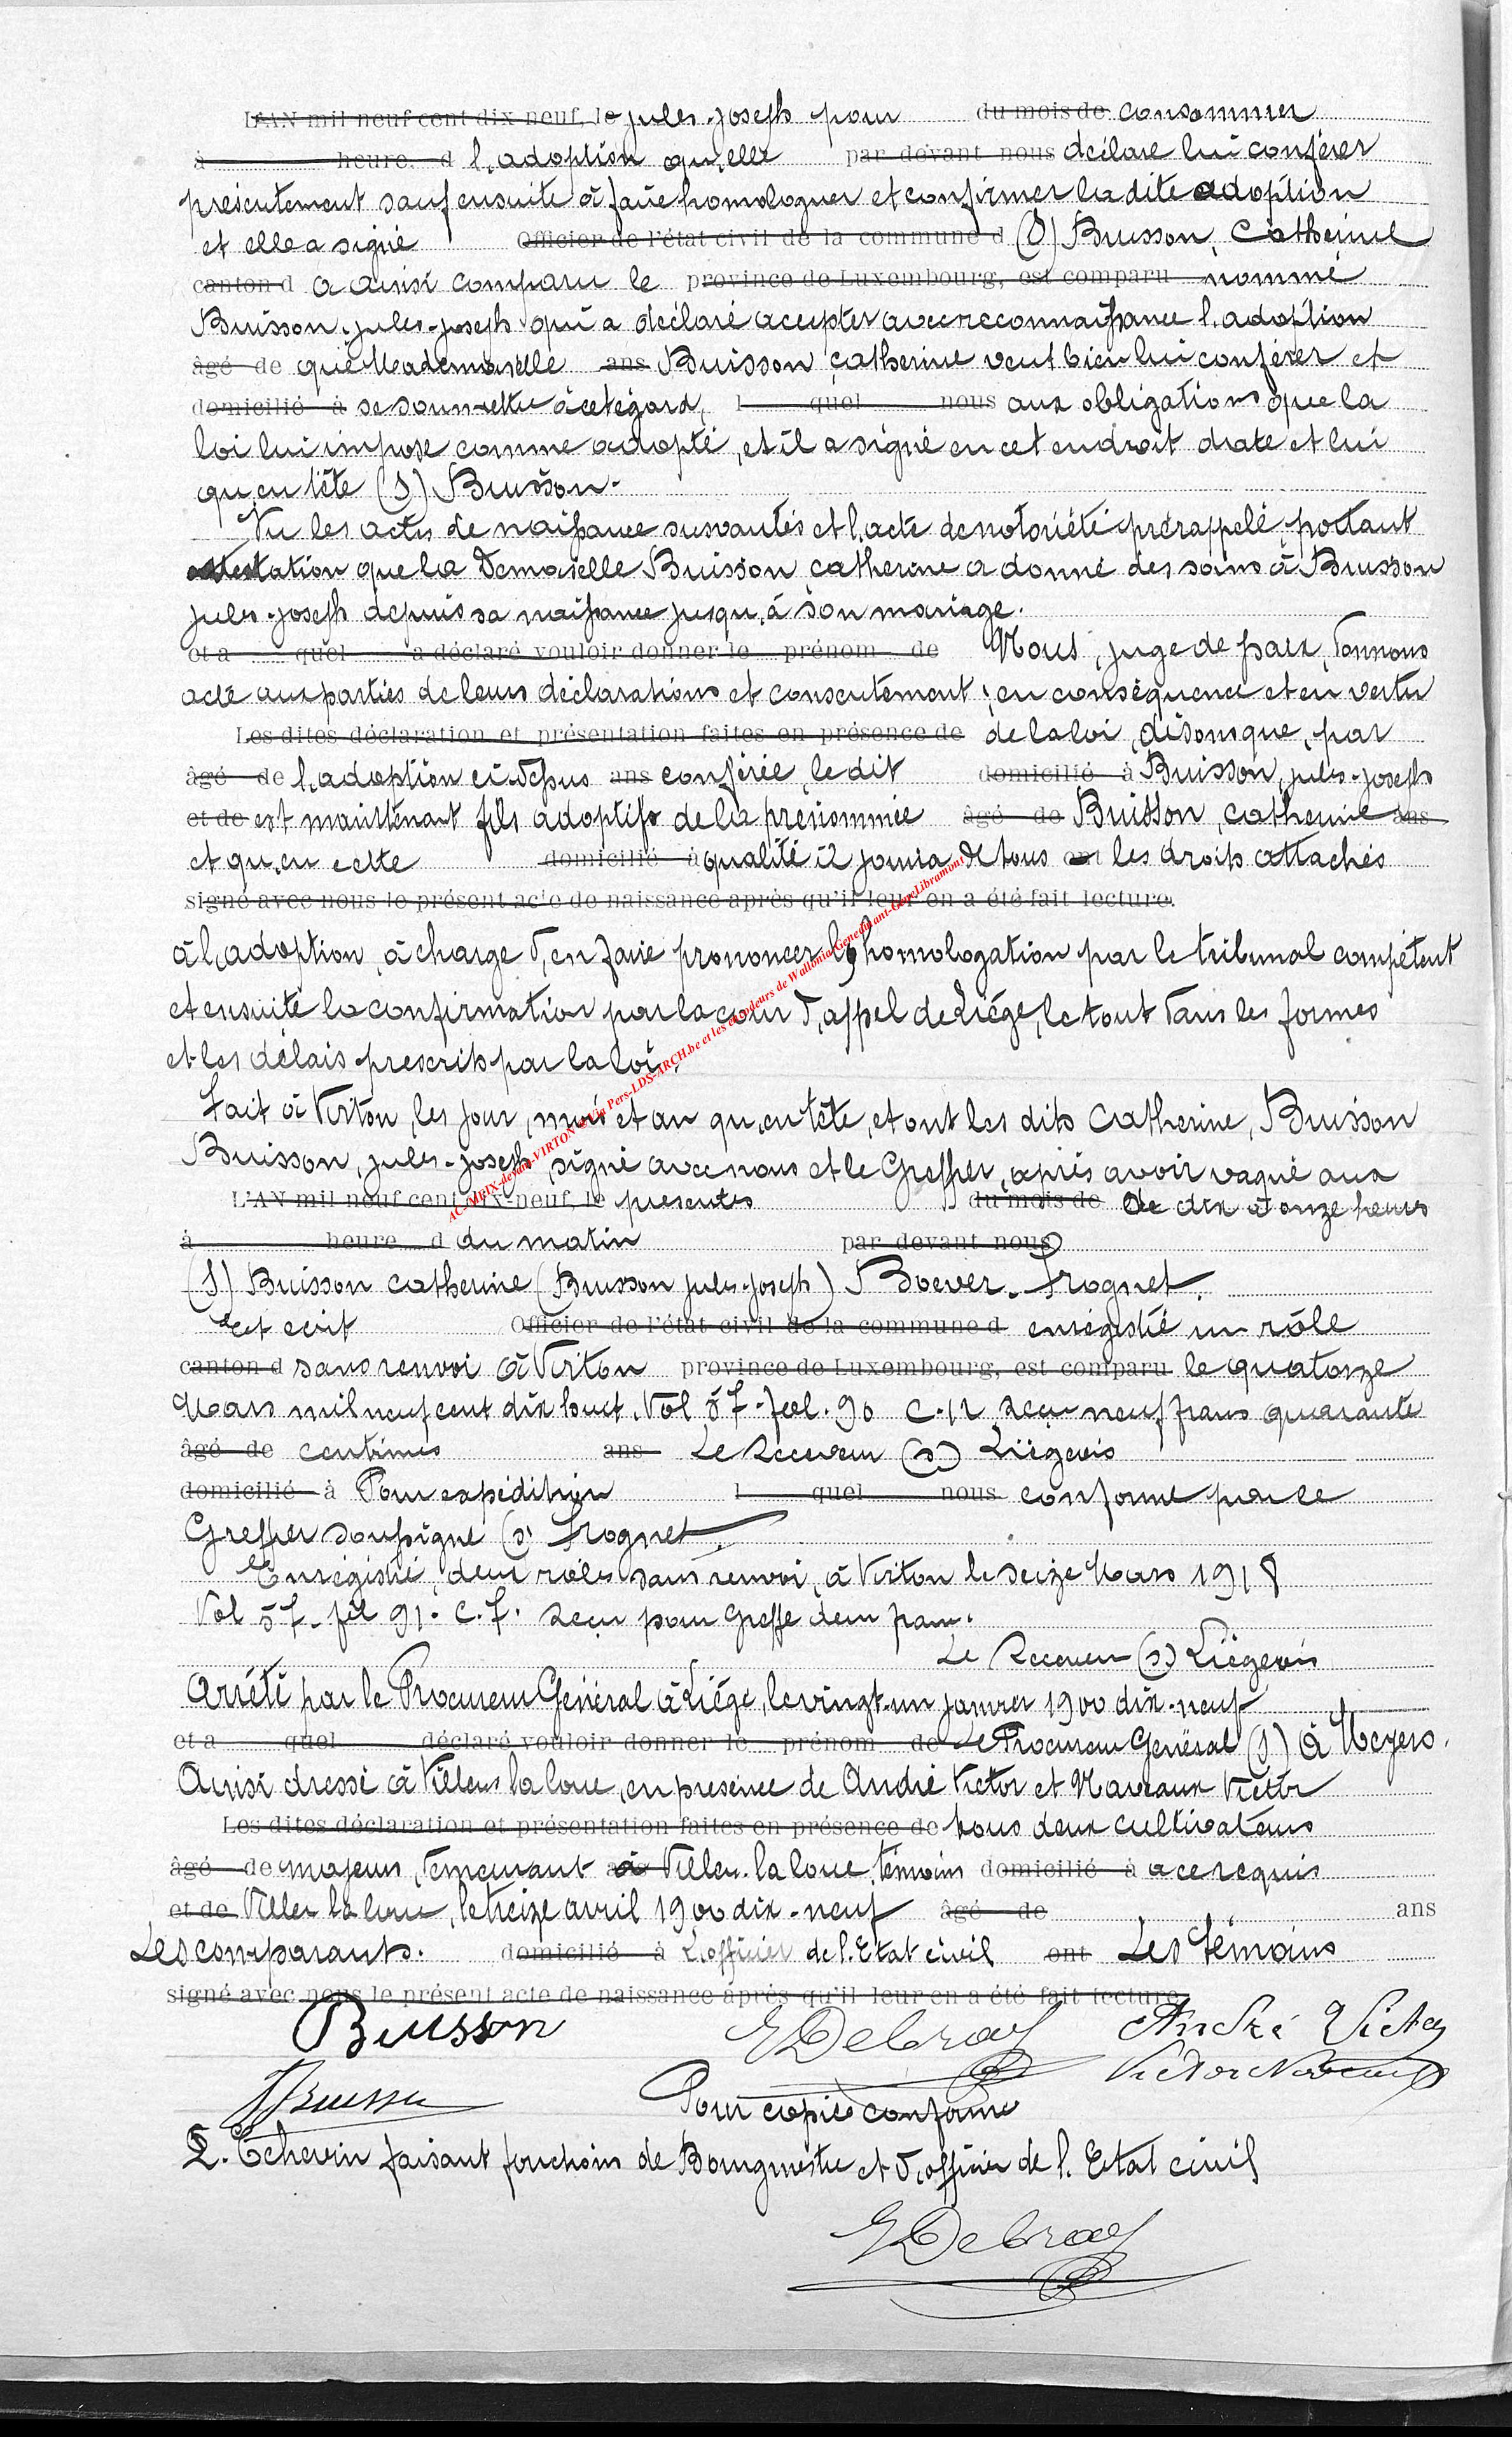 L'AN mil neuf cent dix-neuf, le jules-joseph pour du mois de consommer
à heure d l'adoption qu'elle par devant nous déclare lui conférer
présentement sauf ensuite à faire homologuer et confirmer la dite adoption
et elle a signé Officier de l'état civil de la commune d (S) Buisson, Catherine
canton d a ainsi comparu le province de Luxembourg, est comparu nommé
Buisson, jules-joseph qui a déclaré accepter avec reconnaissance l'adoption
âgé de que Mademoiselle ans Buisson, catherine veut bien lui conférer et
domicilié à se soumettre à cet égard, l quel nous aux obligations que la
loi lui impose comme adopté, et il a signé en cet endroit date et lui
qu'en tête (S) Buisson.
Vu les actes de naissance susvantés et l'acte de notoriété prérappelé portant
attestation que la Demoiselle Buisson, catherine a donné des soins à Buisson
jules-joseph depuis sa naissance jusqu'à son mariage.
et a quel a déclaré vouloir donner le prénom de Nous, juge de paix, donnons
acte aux parties de leurs déclarations et consentement; en conséquence et en vertu
Les dites déclaration et présentation faites en présence de de la loi, disons que, par
âgé de l'adoption ci-dessus ans conférée, le dit domicilié à Buisson, jules-joseph
et de est maintenant fils adoptif de la prénommée âgé de Buisson, catherine ans
et qu'en cette domicilié à qualité il jouira de tous les droits attachés
signé avec nous le présent acte de naissance après qu'il leur en a été fait lecture.
à l'adoption, à charge d'en faire prononcer l'homologation par le tribunal compétent
et ensuite la confirmation par la cour d'appel de Liége, le tout dans les formes
et les délais prescrits par la loi.
Fait à Virton, les jour, mois et an qu'en tête, et ont les dits Catherine, Buisson
Buisson, jules-joseph, signé avec nous et le Greffier, après avoir vaqué aux
L'AN mil neuf cent dix-neuf, le présentes du mois de de dix à onze heures
à heure d du matin par devant nous
(S) Buisson catherine (Buisson jules-joseph) Boever. Frognet.
Est écrit Officier de l'état civil de la commune d enregistré un rôle
canton d sans renvoi à Virton province de Luxembourg, est comparu le quatorze
Mars mil neuf cent dix huit. Vol 57. fol. 90 C.12 Reçu neuf francs quarante
âgé de centimes ans Le Receveur (s) Liégeois
domicilié à Pour expédition l quel nous conforme par le
Greffier soussigné (s) Frognet.
Enregistré, deux rôles sans renvoi, à Virton le seize Mars 1918
Vol 57. fol 91. C.7. Reçu pour Greffe deux francs.
Le Receveur (s) Liégeois
Arrêté par le Procureur Général à Liége, le vingt-un janvier 1900 dix-neuf
et a quel déclaré vouloir donner le prénom de Le Procureur Général (s) A Meyers.
Ainsi dressé à Villers la loue, en présence de André Victor et Naveaux Victor
Les dites déclaration et présentation faites en présence de tous deux cultivateurs
âgé de majeurs, demeurant à Villers-la loue, témoins domicilié à à ce requis
et de Villers la loue, le treize avril 1900 dix-neuf âgé de ans
Les comparants. domicilié à L'officier de l'Etat civil ont Les témoins
signé avec nous le présent acte de naissance après qu'il leur en a été fait lecture.
Buisson Debray André Victor
JBuisson Victor Naveaux
Pour copie conforme
L'Echevin faisant fonctions de Bourgmestre et d'officier de l'Etat civil
Debray